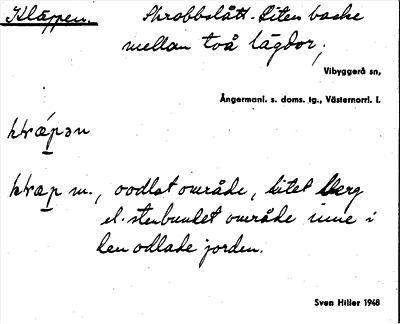 Kläppen. Skrobbslått. Liten backe
mellan två lägdor,
Vibyggerå sn,
Ångermanl. s. doms. tg., Västernorrl. l.
m., oodlat område, litet berg
el. stenbundet område inne i
den odlade jorden.
Sven Hiller 1948